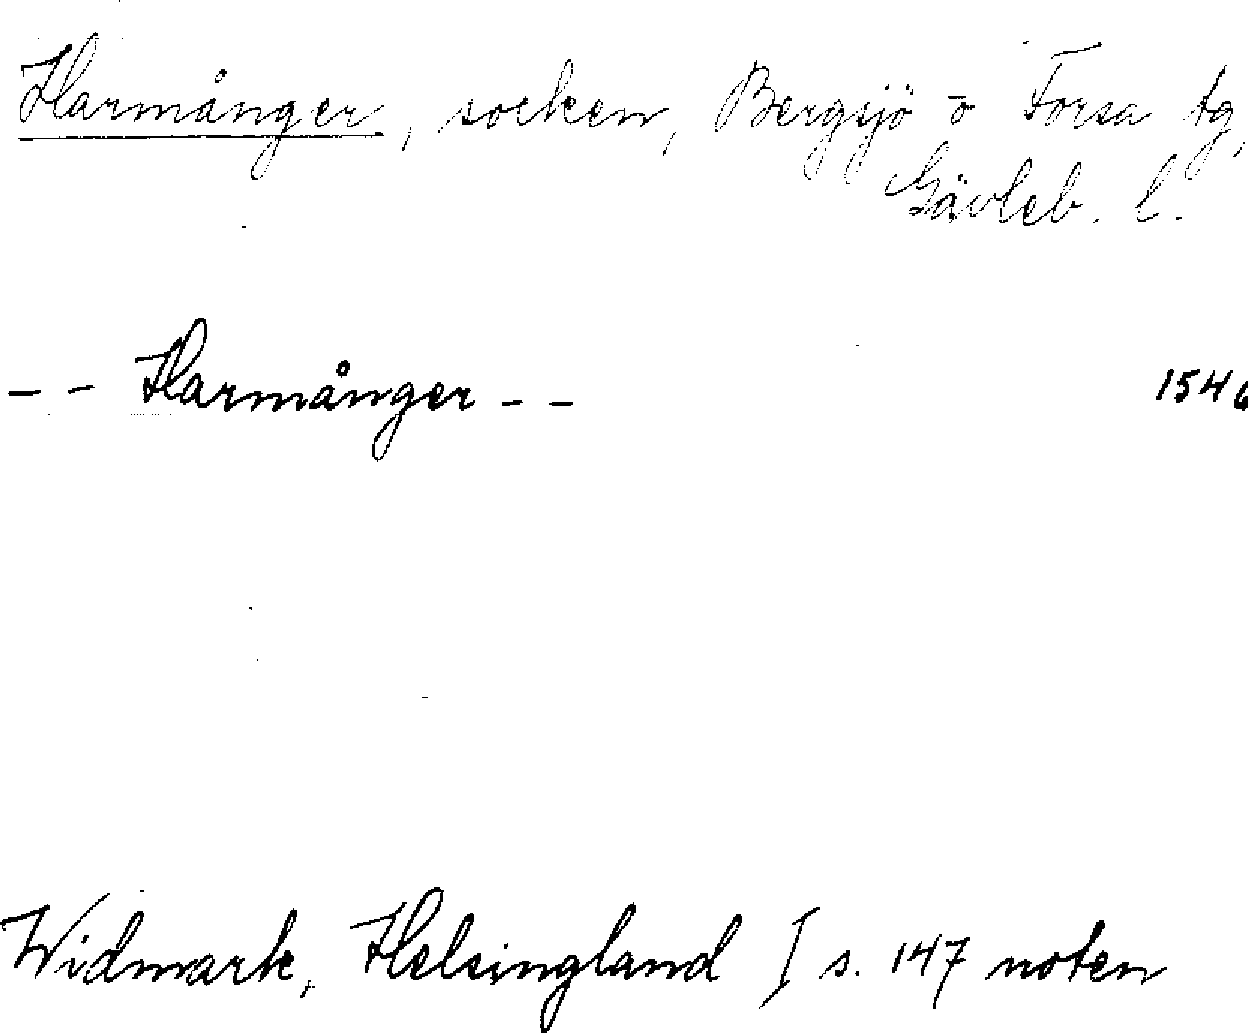 Harmånger, socken, Bergsjö o Forsa tg,
Gävleb. l.
-- Harmånger -- 1546
Widmark, Helsingland I s. 147 noten